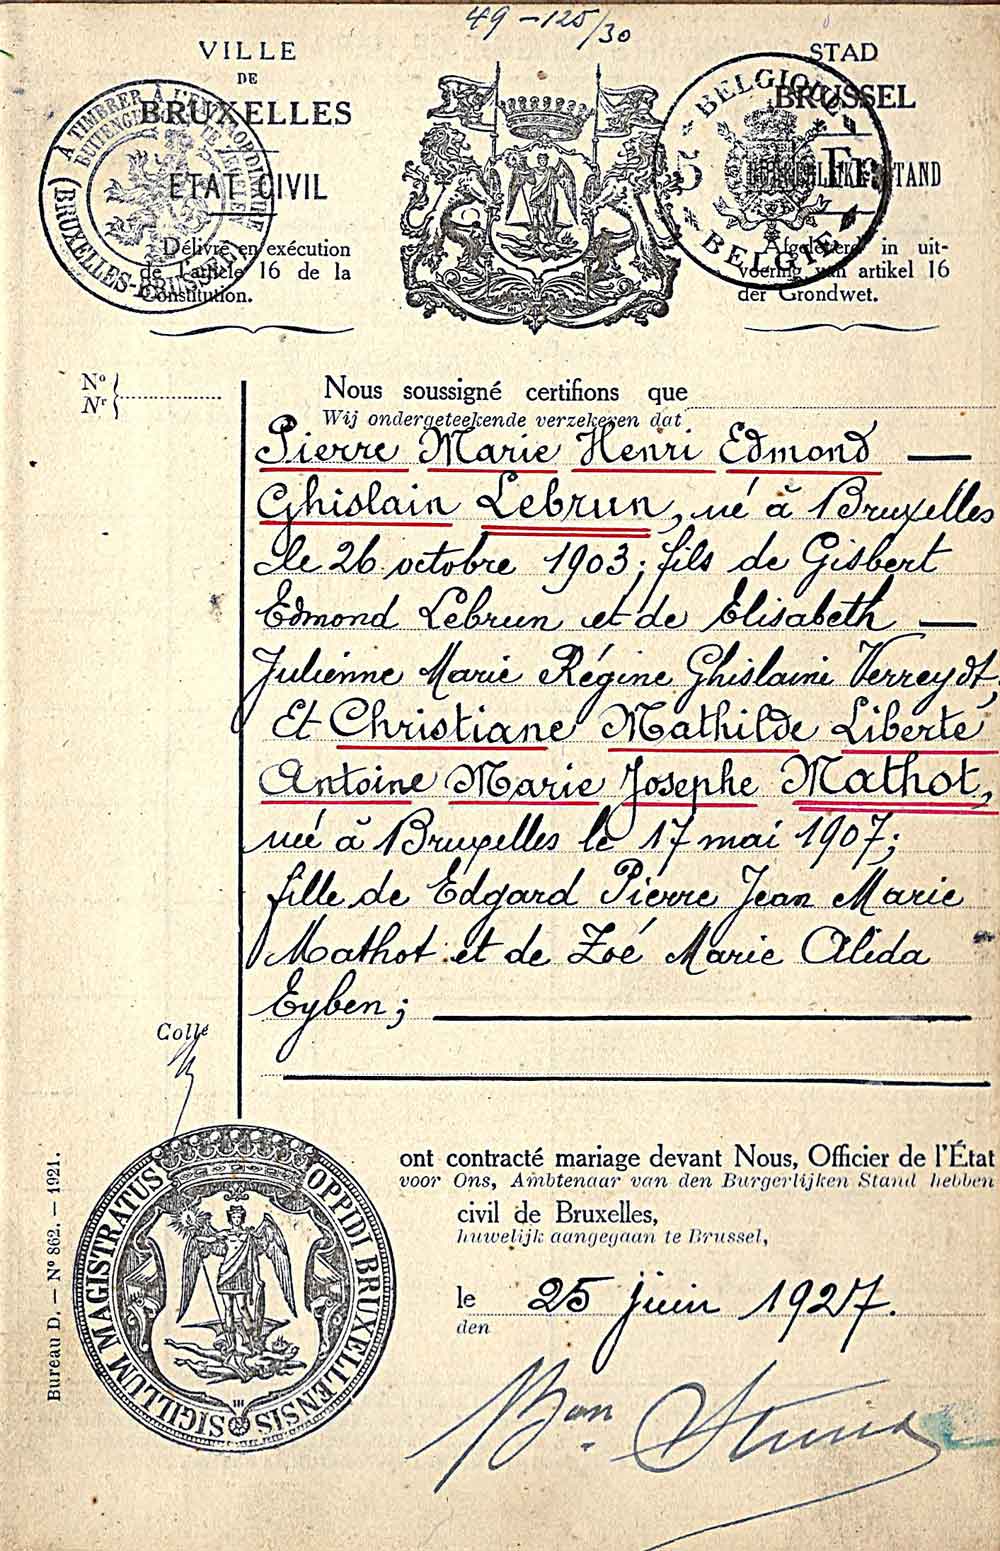 49-125/30
VILLE
DE
BRUXELLES
ÉTAT CIVIL
Délivré en exécution
de l'article 16 de la
Constitution.
À TIMBRER À L'EXTRAORDINAIRE
(BRUXELLES-BRUSSEL)
STAD
BRUSSEL
BURGERLIJKE STAND
Afgeleverd in uit-
voering van artikel 16
der Grondwet.
BELGIQUE
5 Fr
BELGIË
Nº
Nr
Nous soussigné certifions que
Wij ondergeteekende verzekeren dat
Pierre Marie Henri Edmond
Ghislain Lebrun, né à Bruxelles
le 26 octobre 1903; fils de Gisbert
Edmond Lebrun et de Elisabeth
Julienne Marie Régine Ghislaine Verreydt,
Et Christiane Mathilde Liberte
Antoine Marie Josephe Mathot,
née à Bruxelles le 17 mai 1907;
fille de Edgard Pierre Jean Marie
Mathot et de Zoé Marie Alida
Eyben;
Collé
ont contracté mariage devant Nous, Officier de l'État
voor Ons, Ambtenaar van den Burgerlijken Stand hebben
civil de Bruxelles,
huwelijk aangegaan te Brussel,
le 25 juin 1927.
den
SIGILLUM MAGISTRATUS OPPIDI BRUXELLENSIS
Bureau D. — Nº 862. — 1921.
Bon